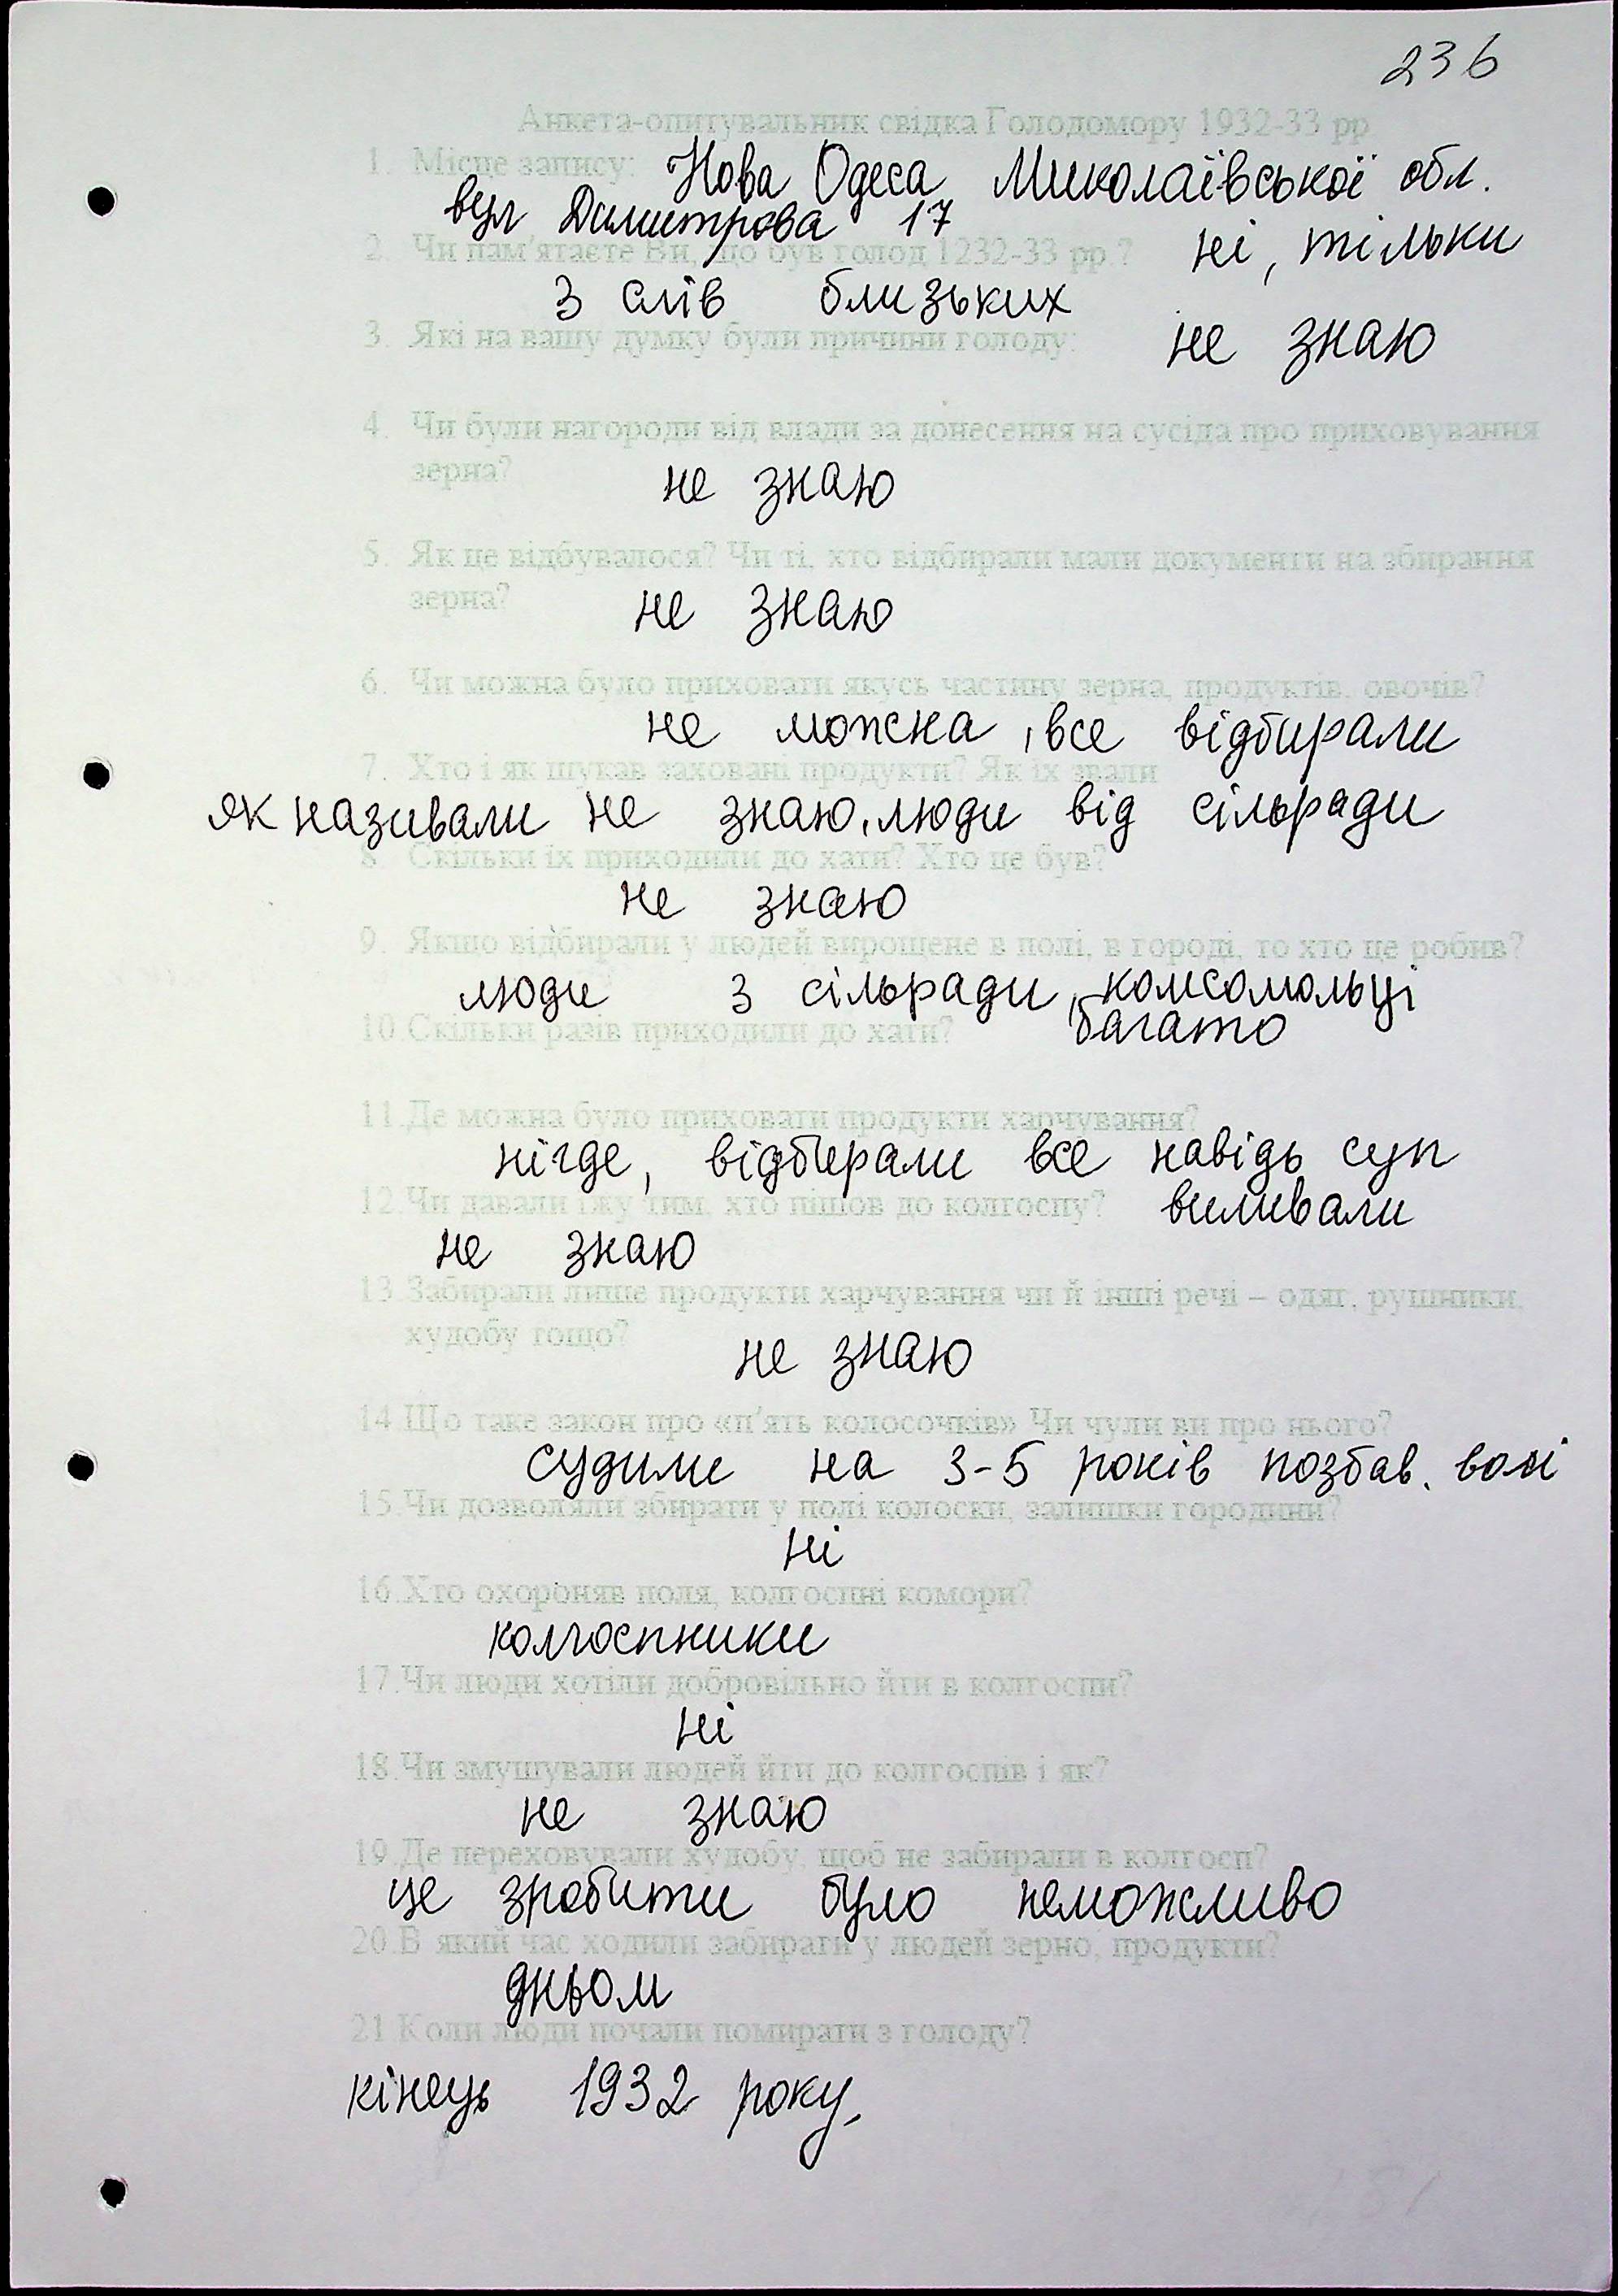 236
Анкета-опитувальник свідка Голодомору 1932-33 рр
1. Місце запису: Нова Одеса Миколаївської обл.
вул Димитрова 17
2. Чи пам'ятаєте Ви, що був голод 1232-33 рр.? ні, тільки
з слів близьких
3. Які на вашу думку були причини голоду: не знаю
4. Чи були нагороди від влади за донесення на сусіда про приховування
зерна? не знаю
5. Як це відбувалося? Чи ті, хто відбирали мали документи на збирання
зерна? не знаю
6. Чи можна було приховати якусь частину зерна, продуктів, овочів?
не можна, все відбирали
7. Хто і як шукав заховані продукти? Як їх звали
як називали не знаю, люди від сільради
8. Скільки їх приходили до хати? Хто це був?
не знаю
9. Якщо відбирали у людей вирощене в полі, в городі, то хто це робив?
люди з сільради, комсомольці
10. Скільки разів приходили до хати? багато
11. Де можна було приховати продукти харчування?
нігде, відбирали все навідь суп
12. Чи давали їжу тим, хто пішов до колгоспу? виливали
не знаю
13. Забирали лише продукти харчування чи й інші речі – одяг, рушники,
худобу тощо? не знаю
14. Що таке закон про «п'ять колосочків» Чи чули ви про нього?
судили на 3-5 років позбав. волі
15. Чи дозволяли збирати у полі колоски, залишки городини?
ні
16. Хто охороняв поля, колгоспні комори?
колгоспники
17. Чи люди хотіли добровільно йти в колгоспи?
ні
18. Чи змушували людей йти до колгоспів і як?
не знаю
19. Де переховували худобу, щоб не забирали в колгосп?
це зробити було неможливо
20. В який час ходили забирати у людей зерно, продукти?
дньом
21 Коли люди почали помирати з голоду?
кінець 1932 року.